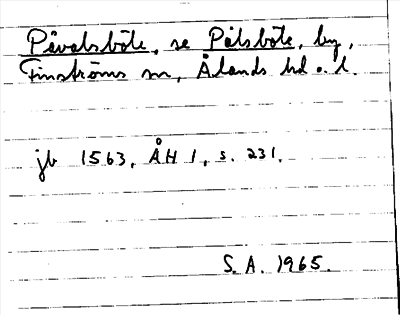 Påvalsböle, se Pålsböle, by,
Finströms sn, Ålands hd o. l.
jb 1563, ÅH 1, s. 231.
S. A. 1965.